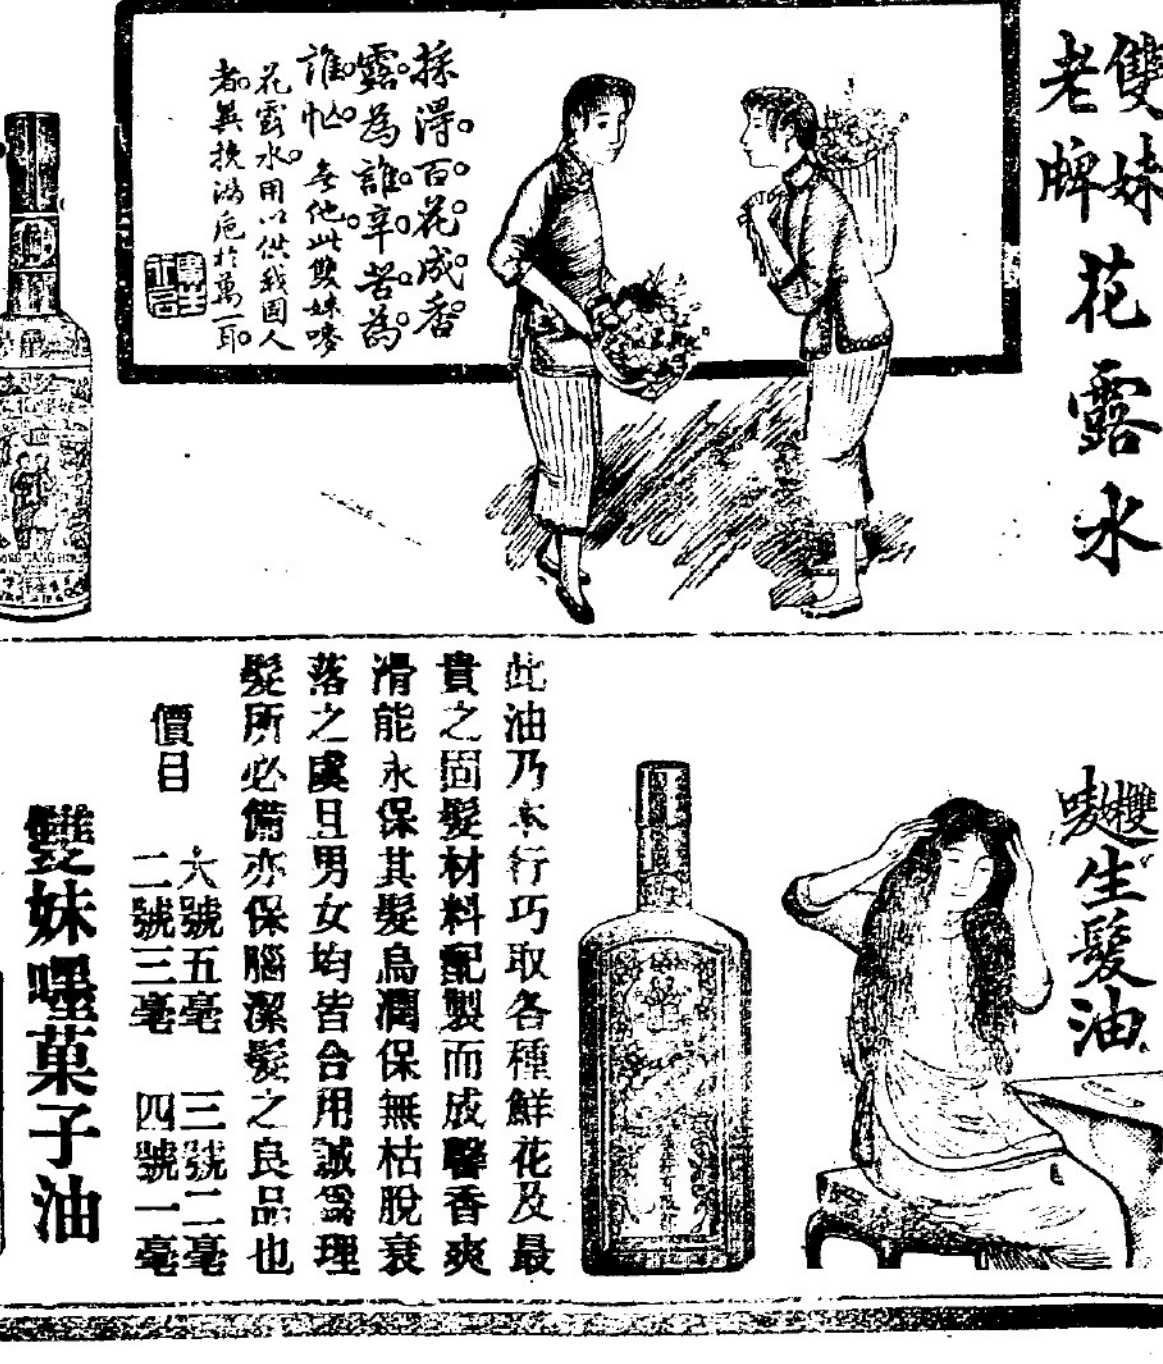 雙妹
老牌
花露水
採得百花成香
露為誰辛苦為
誰忙。無他此雙妹嘜
花露水。用以供我國人
者。冀挽漏卮於萬一耳。
雙妹嘜
生髮油
此油乃本行巧取各種鮮花及最
貴之固髮材料配製而成馨香爽
滑能永保其髮烏潤保無枯脫衰
落之虞且男女均皆合用誠爲理
髮所必備亦保腦潔髮之良品也
價目
六號五毫 三號二毫
二號三毫 四號一毫
雙妹嘜菓子油